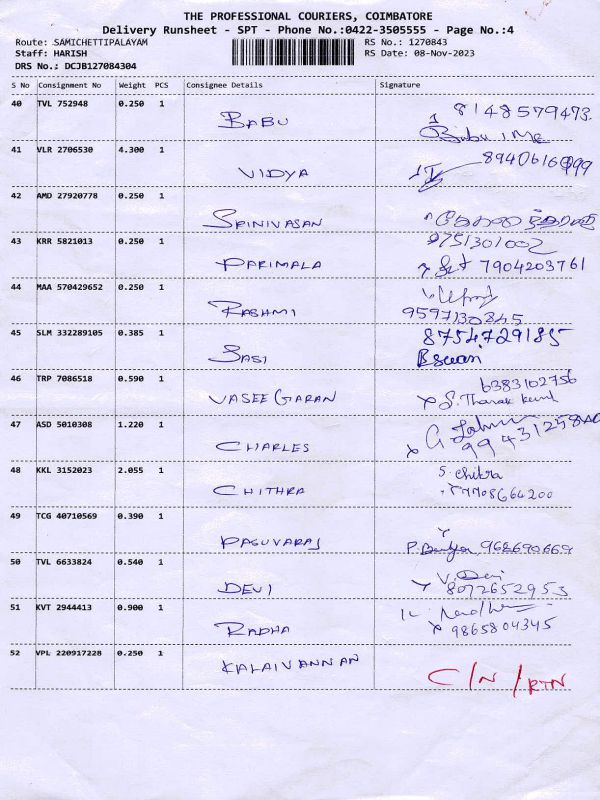 THE PROFESSIONAL COURIERS, COIMBATORE
Delivery Runsheet - SPT - Phone No.:0422-3505555 - Page No.:4
Route: SAMICHETTIPALAYAM RS No.: 1270843
Staff: HARISH RS Date: 08-Nov-2023
DRS No.: DCJB127084304
S No Consignment No Weight PCS Consignee Details Signature
40 TVL 752948 0.250 1 BABU 8148579473.
41 VLR 2706530 4.300 1 VIDYA
42 AMD 27920778 0.250 1 SRINIVASAN
9751301002
43 KRR 5821013 0.250 1 PARIMALA 7904203761
44 MAA 570429652 0.250 1 RASHMI
9597130845
45 SLM 332289105 0.385 1 SASI 8754729185
46 TRP 7086518 0.590 1 VASEEGARAN 6383102756
S. Tharak
47 ASD 5010308 1.220 1 CHARLES
48 KKL 3152023 2.055 1 CHITHRA S. Chitra
49 TCG 40710569 0.390 1 PASUVARAJ
50 TVL 6633824 0.540 1 DEVI V. Devi
8072652953
51 KVT 2944413 0.900 1 RADHA
9865804345
52 VPL 220917228 0.250 1 KALAIVANNAN C/N/RTN